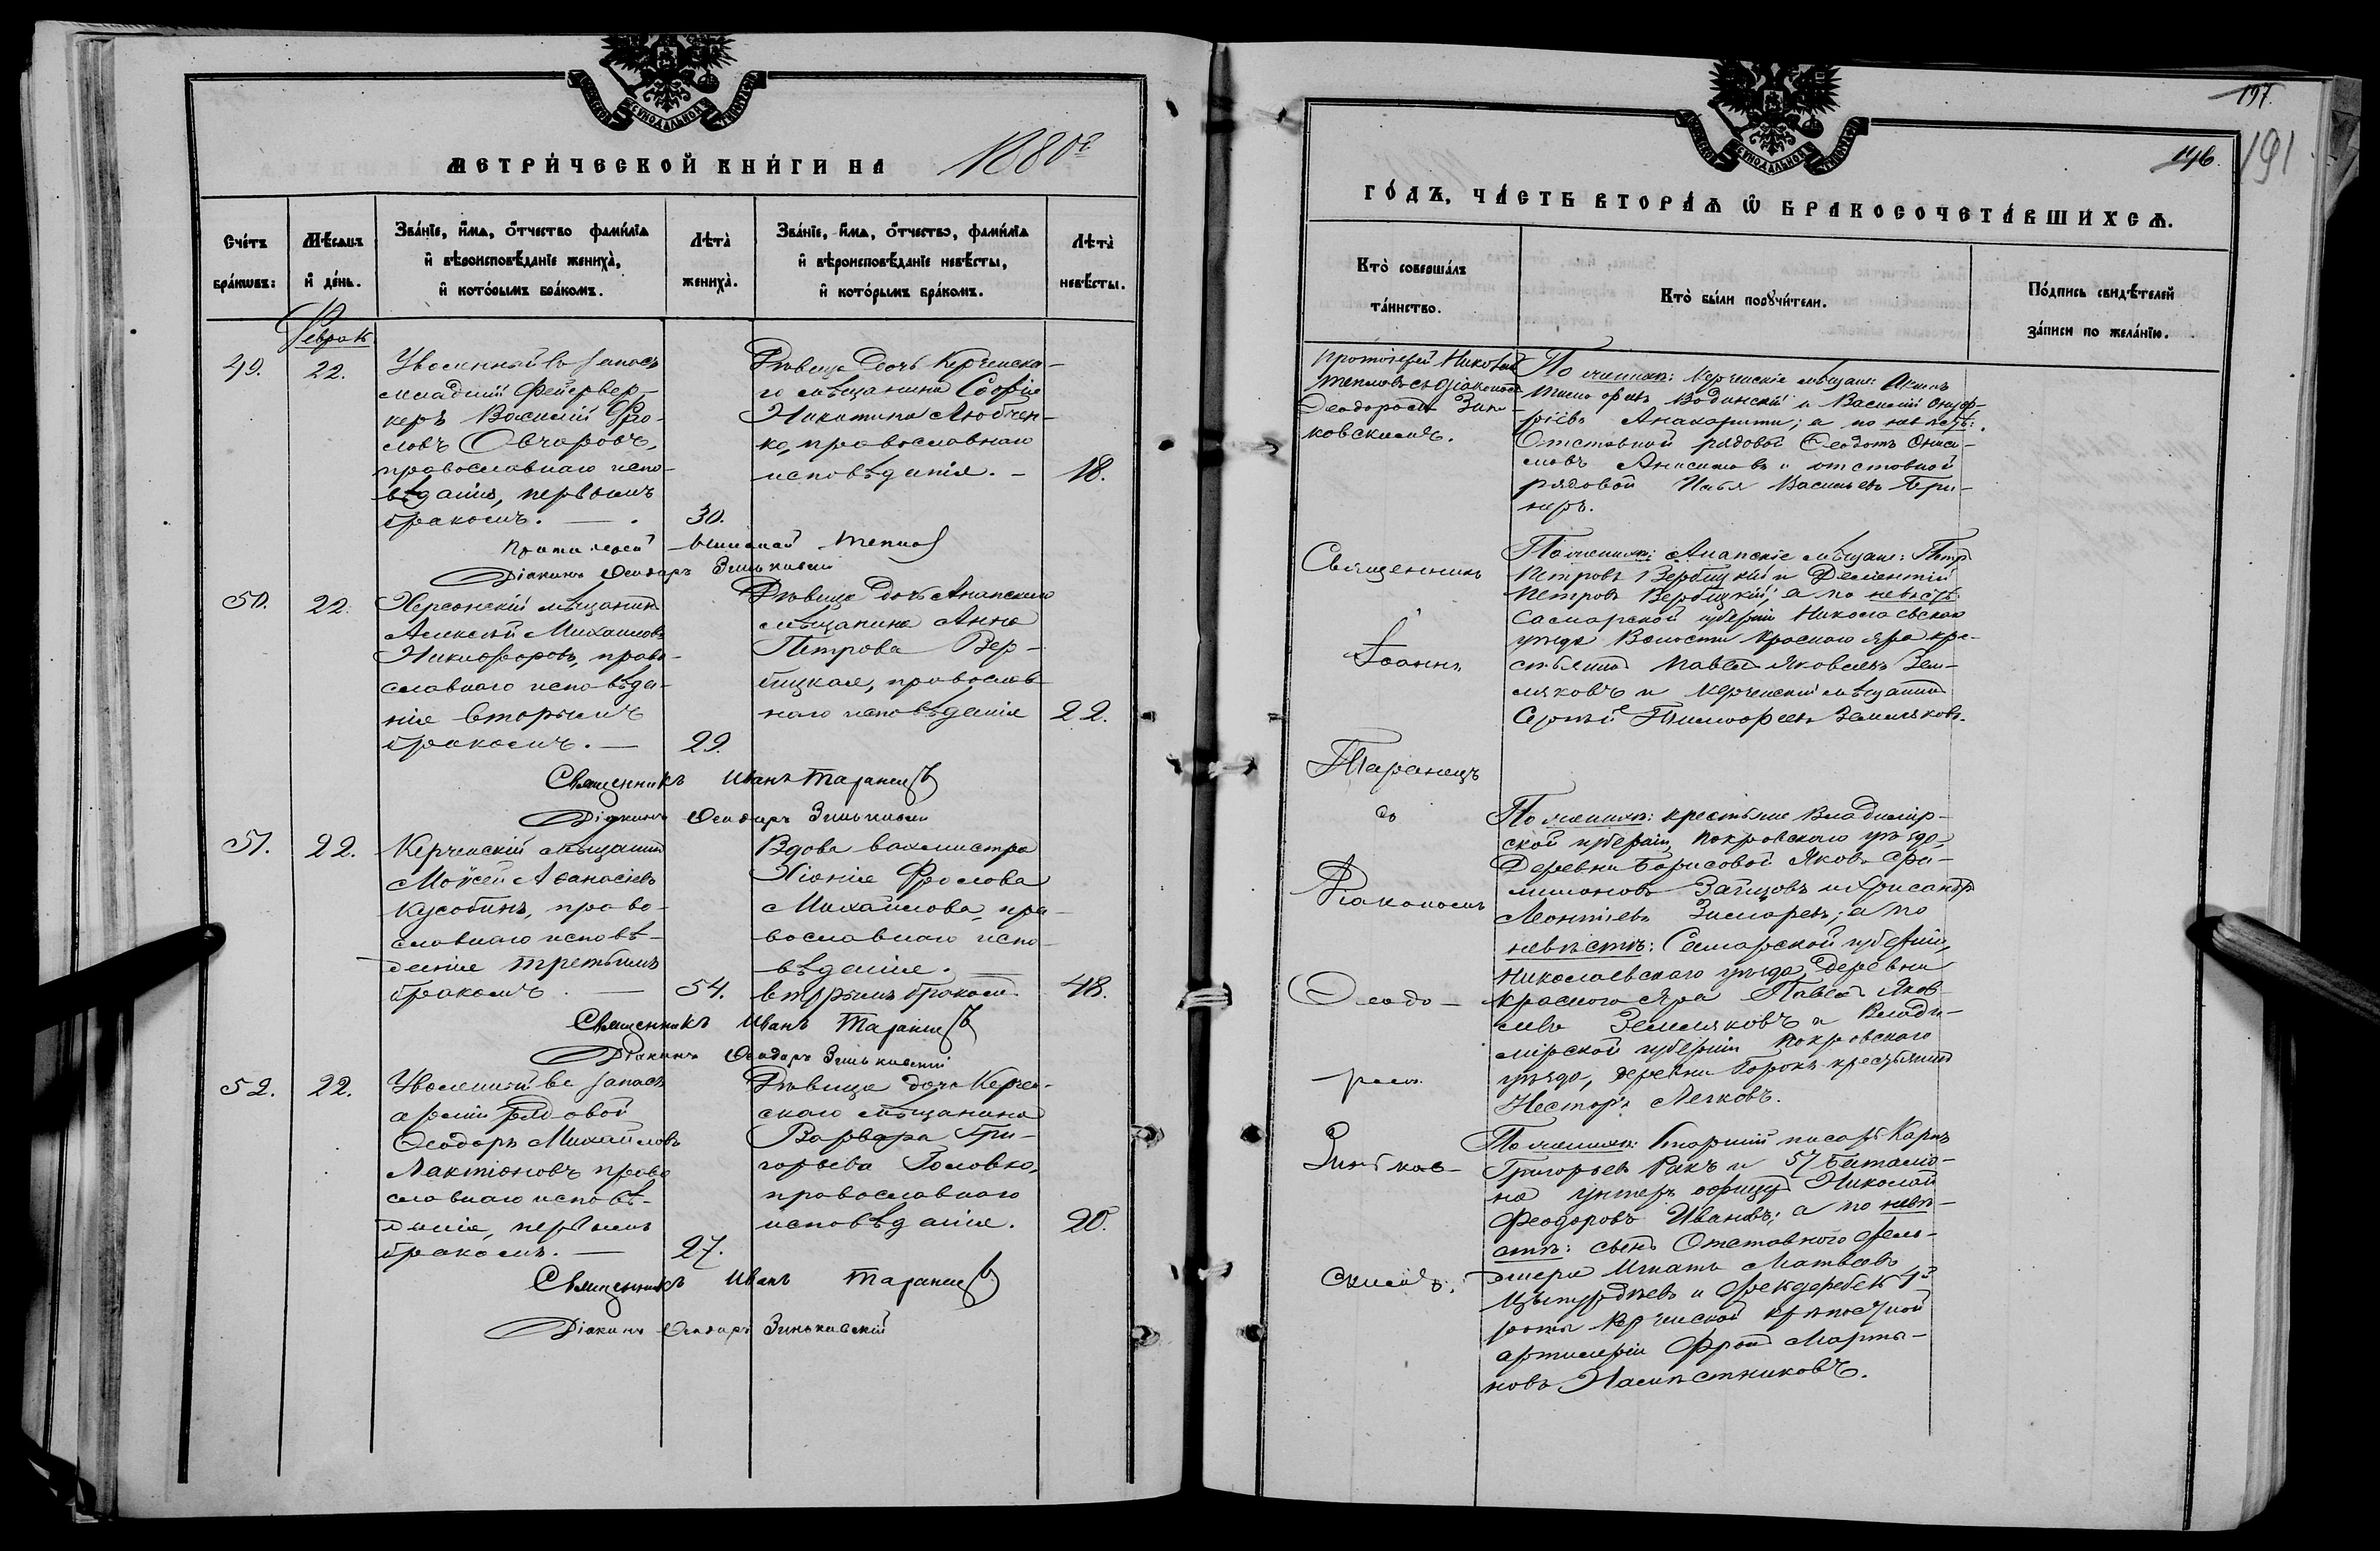 МЕТРИ́ЧЕСКОЙ КНИ́ГИ НА 1880й
Сче́тъ бра́ковъ:
Мѣ́сяцъ и де́нь.
Зва́нїе, и́мя, о́тчество фами́лїа
и вѣроисповѣ́данїе жениха̀,
и кото́рымъ бра́комъ.
Лѣта̀
жениха̀.
Зва́нїе, и́мя, о́тчество, фами́лїа
и вѣроисповѣ́данїе невѣ́сты,
и кото́рымъ бра́комъ.
Лѣта̀
невѣ́сты.
Феврал.
49.
22.
Уволенный въ запасъ
младшій Фейервер-
керъ Василій Фро-
ловъ Овчаровъ,
православнаго испо-
вѣданія, первымъ
бракомъ. —
30.
Дѣвица дочь Керченска-
го мѣщанина Софія
Никитина Любчен-
ко, православнаго
исповѣданія. —
18.
Протоіерей Николай
Діаконъ Ѳеодоръ Зиньковскій
50.
22.
Херсонскій мѣщанинъ
Алексѣй Михаиловъ
Никифоровъ, право-
славнаго исповѣда-
нія вторымъ
бракомъ. —
29.
Дѣвица дочь Анапскаго
мѣщанина Анна
Петрова Вер-
бицкая, православ-
наго исповѣданія
22.
Священникъ Иванъ Таранецъ
Діаконъ Ѳеодоръ Зиньковскій
51.
22.
Керченскій мѣщанинъ
Моисей Аѳанасіевъ
Кусобинъ, право-
славнаго исповѣ-
данія третьимъ
бракомъ. —
54.
Вдова вахмистра
Хіонія Фролова
Михаилова, пра-
вославнаго испо-
вѣданія.
вторымъ бракомъ.
48.
Священникъ Иванъ Таранецъ
Діаконъ Ѳеодоръ Зиньковскій
52.
22.
Уволенный въ запасъ
арміи рядовой
Ѳеодоръ Михайловъ
Лактіоновъ право
славнаго исповѣ-
данія, первымъ
бракомъ. —
27.
Дѣвица дочь Керчен-
скаго мѣщанина
Варвара Гри-
горьева Головко,
православнаго
исповѣданія.
20.
Священникъ Иванъ Таранецъ
Діаконъ Ѳеодоръ Зиньковскій
197.
191
196.
ГО́ДЪ, ЧА́СТЬ ВТОРА́Я Ѡ БРАКОСОЧЕТА́ВШИХСЯ.
Кто̀ соверша́лъ
та́инство.
Кто̀ бы́ли порꙋчи́тели.
По́дпись свидѣ́телей
за́писи по жела́нїю.
Протоіерей Николай
съ діакономъ
Ѳеодоромъ Зинь-
ковскимъ.
По женихѣ: Керченскіе мѣщане:
Водинскій и Василій Онуф-
ріевъ; а по невѣстѣ:
Отставной рядовой Ѳедотъ Аниси-
мовъ Анисимовъ и отставной
рядовой Илья Васильевъ
Священникъ
Іоаннъ
Таранецъ
съ
Діакономъ
Ѳеодо-
ромъ
Зиньков-
скимъ.
По женихѣ: Анапскіе мѣщане: Петръ
Петровъ Вербицкій и Дементій
Петровъ Вербицкій; а по невѣстѣ:
Самарской губерніи Николаевскаго
уѣзда Волости Краснаго Яра кре-
стьянинъ Павелъ Яковлевъ Зем-
ляковъ и Керченскій мѣщанинъ
Сергѣй Тимофеевъ Земляковъ.
По женихѣ: крестьяне Владимір-
ской губерніи, Покровскаго уѣзда,
Деревни Борисовой Яковъ Фи-
лимоновъ Зайцовъ и Хрисанфъ
Леонтіевъ Зимаревъ; а по
невѣстѣ: Самарской губерніи,
Николаевскаго уѣзда, деревни
Краснаго Яра Павелъ Яков-
левъ Земляковъ и Влади-
мірской губерніи Покровскаго
уѣзда, деревни Горокъ крестьянинъ
Несторъ Легковъ.
По женихѣ: Старшій писарь Карпъ
Григорьевъ Ракъ и 57 баталіо-
на унтеръ офицеръ Николай
Феодоровъ Ивановъ; а по невѣ-
стѣ: сынъ Отставного фельд-
шера Игнатъ Матвѣевъ
и 4й
роты Керченской крѣпостной
артиллеріи Фролъ Марты-
новъ Намѣстниковъ.